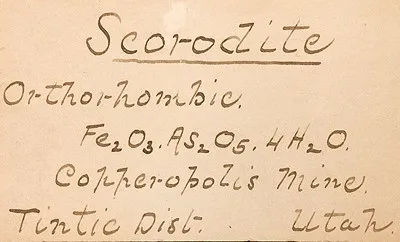 Scorodite
Orthorhombic.
Fe₂O₃.As₂O₅.4H₂O.
Copperopolis Mine.
Tintic Dist. Utah.